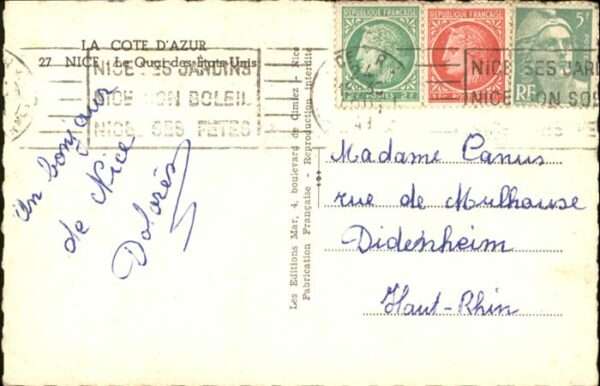 LA COTE D'AZUR
27 NICE Le Quai des Etats-Unis
NICE SES JARDINS
NICE SON SOLEIL
NICE SES FETES
un bonjour
de Nice
Dolorès
Les Editions Mar, 4, boulevard de Cimiez - Nice
Fabrication Française - Reproduction interdite
RÉPUBLIQUE FRANÇAISE
RÉPUBLIQUE FRANÇAISE
5f
RF
NICE SES JAR
NICE SON SO
Madame Canus
rue de Mulhouse
Didenheim
Haut-Rhin